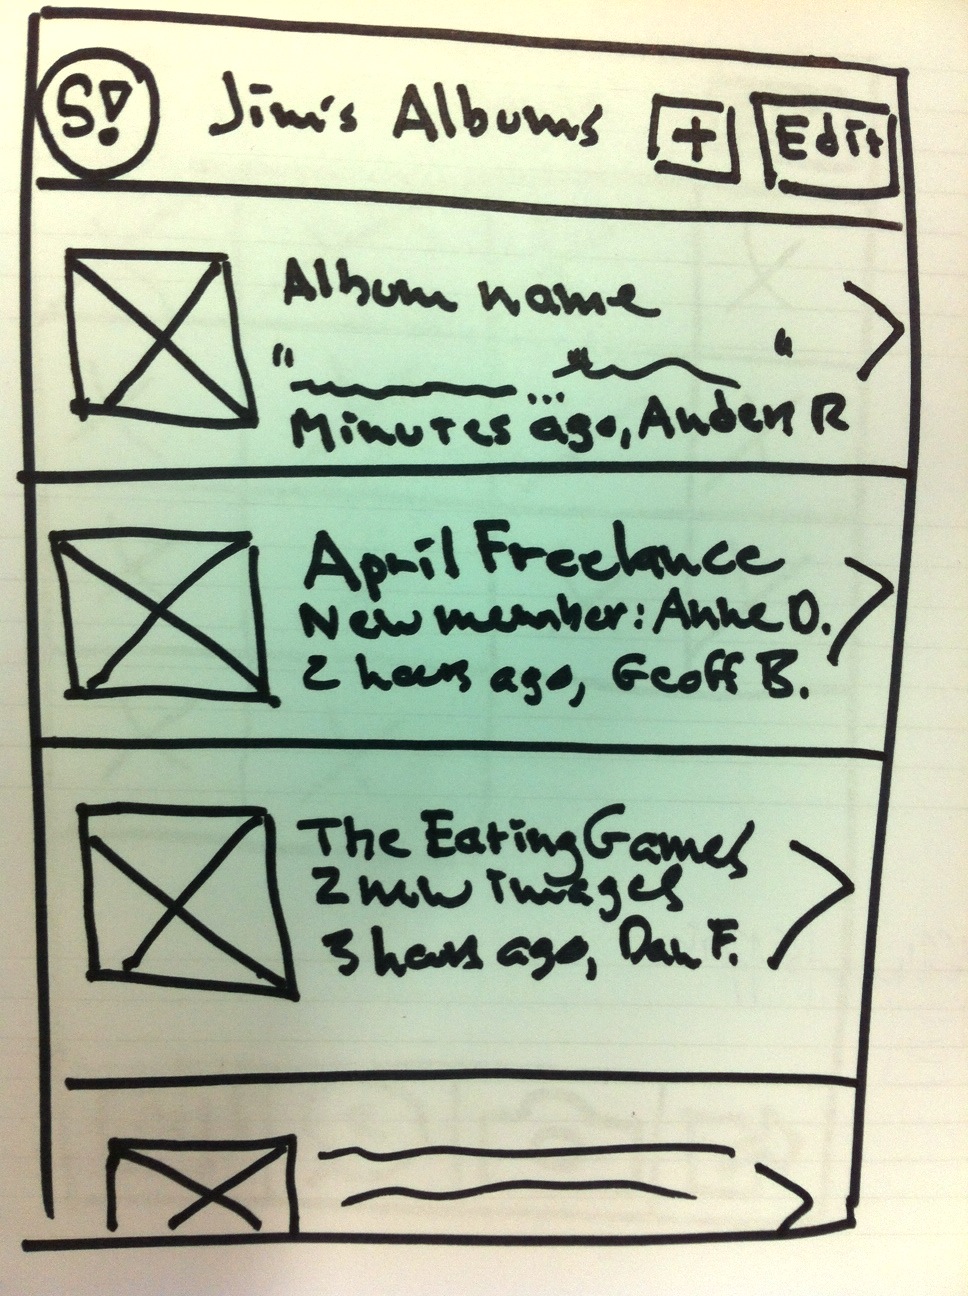 S! Jim's Albums + Edit
Album name
" ... "
Minutes ago, Anders R
April Freelance
New member: Anne D.
2 hours ago, Geoff B.
The Eating Games
2 new images
3 hours ago, Dan F.